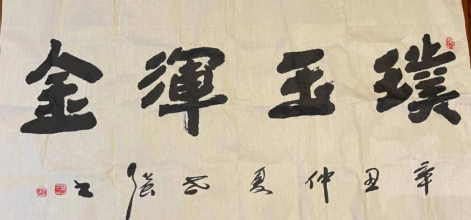 璞玉渾金
辛丑仲夏
書